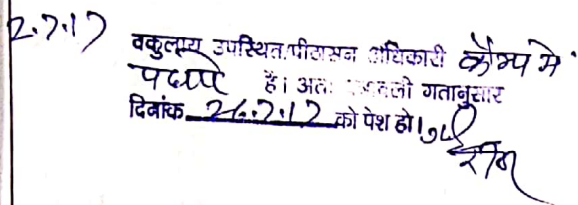 2.7.17
वकुलाय उपस्थित।पीठासन अधिकारी कैम्प में
पधारे हैं। अतः पत्रावली गतानुसार
दिनांक 26.7.17 को पेश हो।